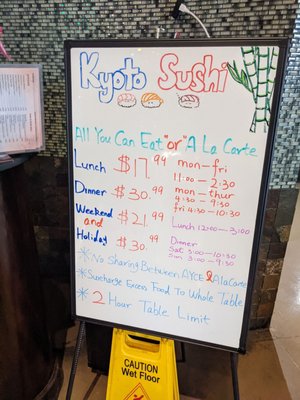 Kyoto Sushi
All You Can Eat "or" A La Carte
Lunch $17.99 mon-fri
11-2:30
Dinner $30.99 mon-thur
4:30-9:30
fri 4:30-10:30
Weekend and Holiday
$21.99 Lunch 12:00-3:00
$30.99 Dinner
Sat 3:00-10:30
Sun 3:00-9:30
*No Sharing Between AYCE & A la Carte
*Surcharge Excess Food To Whole Table
*2 Hour Table Limit
CAUTION
Wet Floor